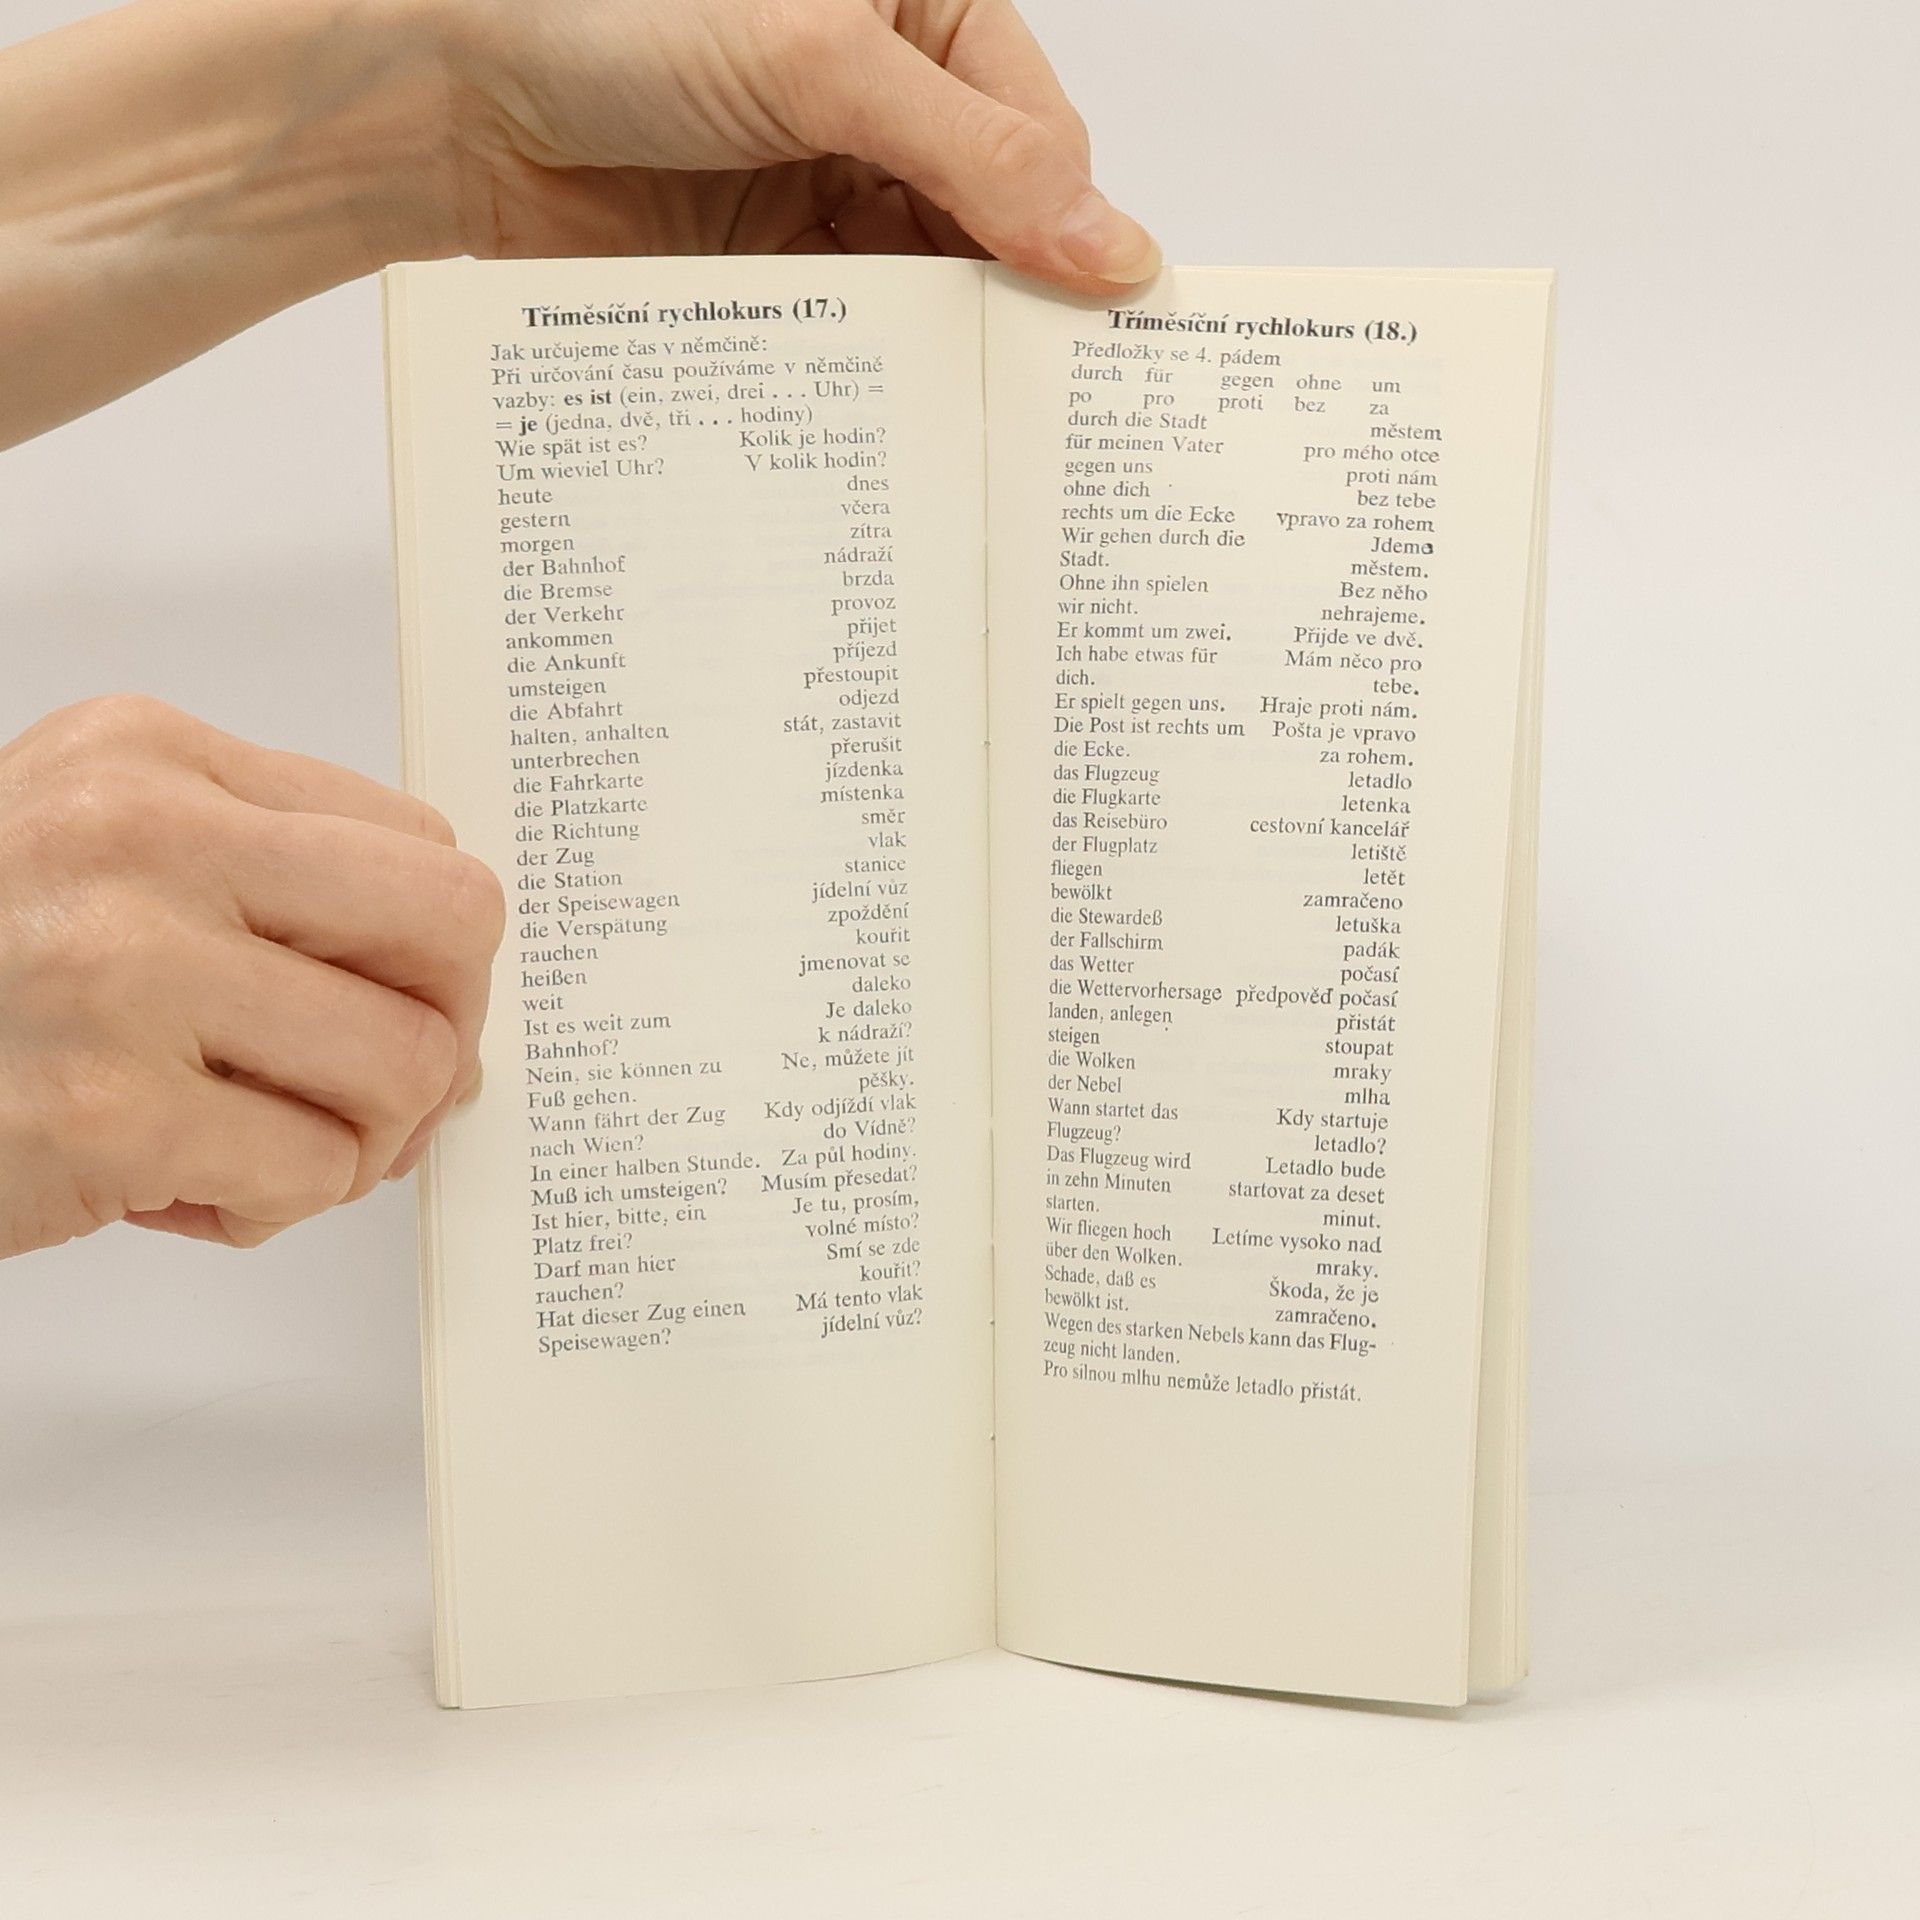 Tříměsíční rychlokurs (17.)
Jak určujeme čas v němčině:
Při určování času používáme v němčině
vazby: es ist (ein, zwei, drei . . . Uhr) =
= je (jedna, dvě, tři . . . hodiny)
Wie spät ist es? Kolik je hodin?
Um wieviel Uhr? V kolik hodin?
heute dnes
gestern včera
morgen zítra
der Bahnhof nádraží
die Bremse brzda
der Verkehr provoz
ankommen přijet
die Ankunft příjezd
umsteigen přestoupit
die Abfahrt odjezd
halten, anhalten stát, zastavit
unterbrechen přerušit
die Fahrkarte jízdenka
die Platzkarte místenka
die Richtung směr
der Zug vlak
die Station stanice
der Speisewagen jídelní vůz
die Verspätung zpoždění
rauchen kouřit
heißen jmenovat se
weit daleko
Ist es weit zum Je daleko
Bahnhof? k nádraží?
Nein, sie können zu Ne, můžete jít
Fuß gehen. pěšky.
Wann fährt der Zug Kdy odjíždí vlak
nach Wien? do Vídně?
In einer halben Stunde. Za půl hodiny.
Muß ich umsteigen? Musím přesedat?
Ist hier, bitte, ein Je tu, prosím,
Platz frei? volné místo?
Darf man hier Smí se zde
rauchen? kouřit?
Hat dieser Zug einen Má tento vlak
Speisewagen? jídelní vůz?
Tříměsíční rychlokurs (18.)
Předložky se 4. pádem
durch für gegen ohne um
po pro proti bez za
durch die Stadt městem
für meinen Vater pro mého otce
gegen uns proti nám
ohne dich bez tebe
rechts um die Ecke vpravo za rohem
Wir gehen durch die Jdeme
Stadt. městem.
Ohne ihn spielen Bez něho
wir nicht. nehrajeme.
Er kommt um zwei. Přijde ve dvě.
Ich habe etwas für Mám něco pro
dich. tebe.
Er spielt gegen uns. Hraje proti nám.
Die Post ist rechts um Pošta je vpravo
die Ecke. za rohem.
das Flugzeug letadlo
die Flugkarte letenka
das Reisebüro cestovní kancelář
der Flugplatz letiště
fliegen letět
bewölkt zamračeno
die Stewardeß letuška
der Fallschirm padák
das Wetter počasí
die Wettervorhersage předpověď počasí
landen, anlegen přistát
steigen stoupat
die Wolken mraky
der Nebel mlha
Wann startet das Kdy startuje
Flugzeug? letadlo?
Das Flugzeug wird Letadlo bude
in zehn Minuten startovat za deset
starten. minut.
Wir fliegen hoch Letíme vysoko nad
über den Wolken. mraky.
Schade, daß es Škoda, že je
bewölkt ist. zamračeno.
Wegen des starken Nebels kann das Flug-
zeug nicht landen.
Pro silnou mlhu nemůže letadlo přistát.